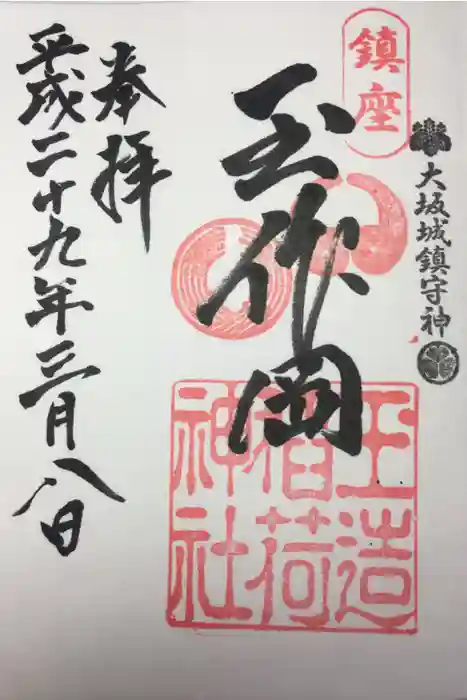 大坂城鎮守神
鎮座
玉作岡
玉造
稲荷
神社
奉拝
平成二十九年三月八日